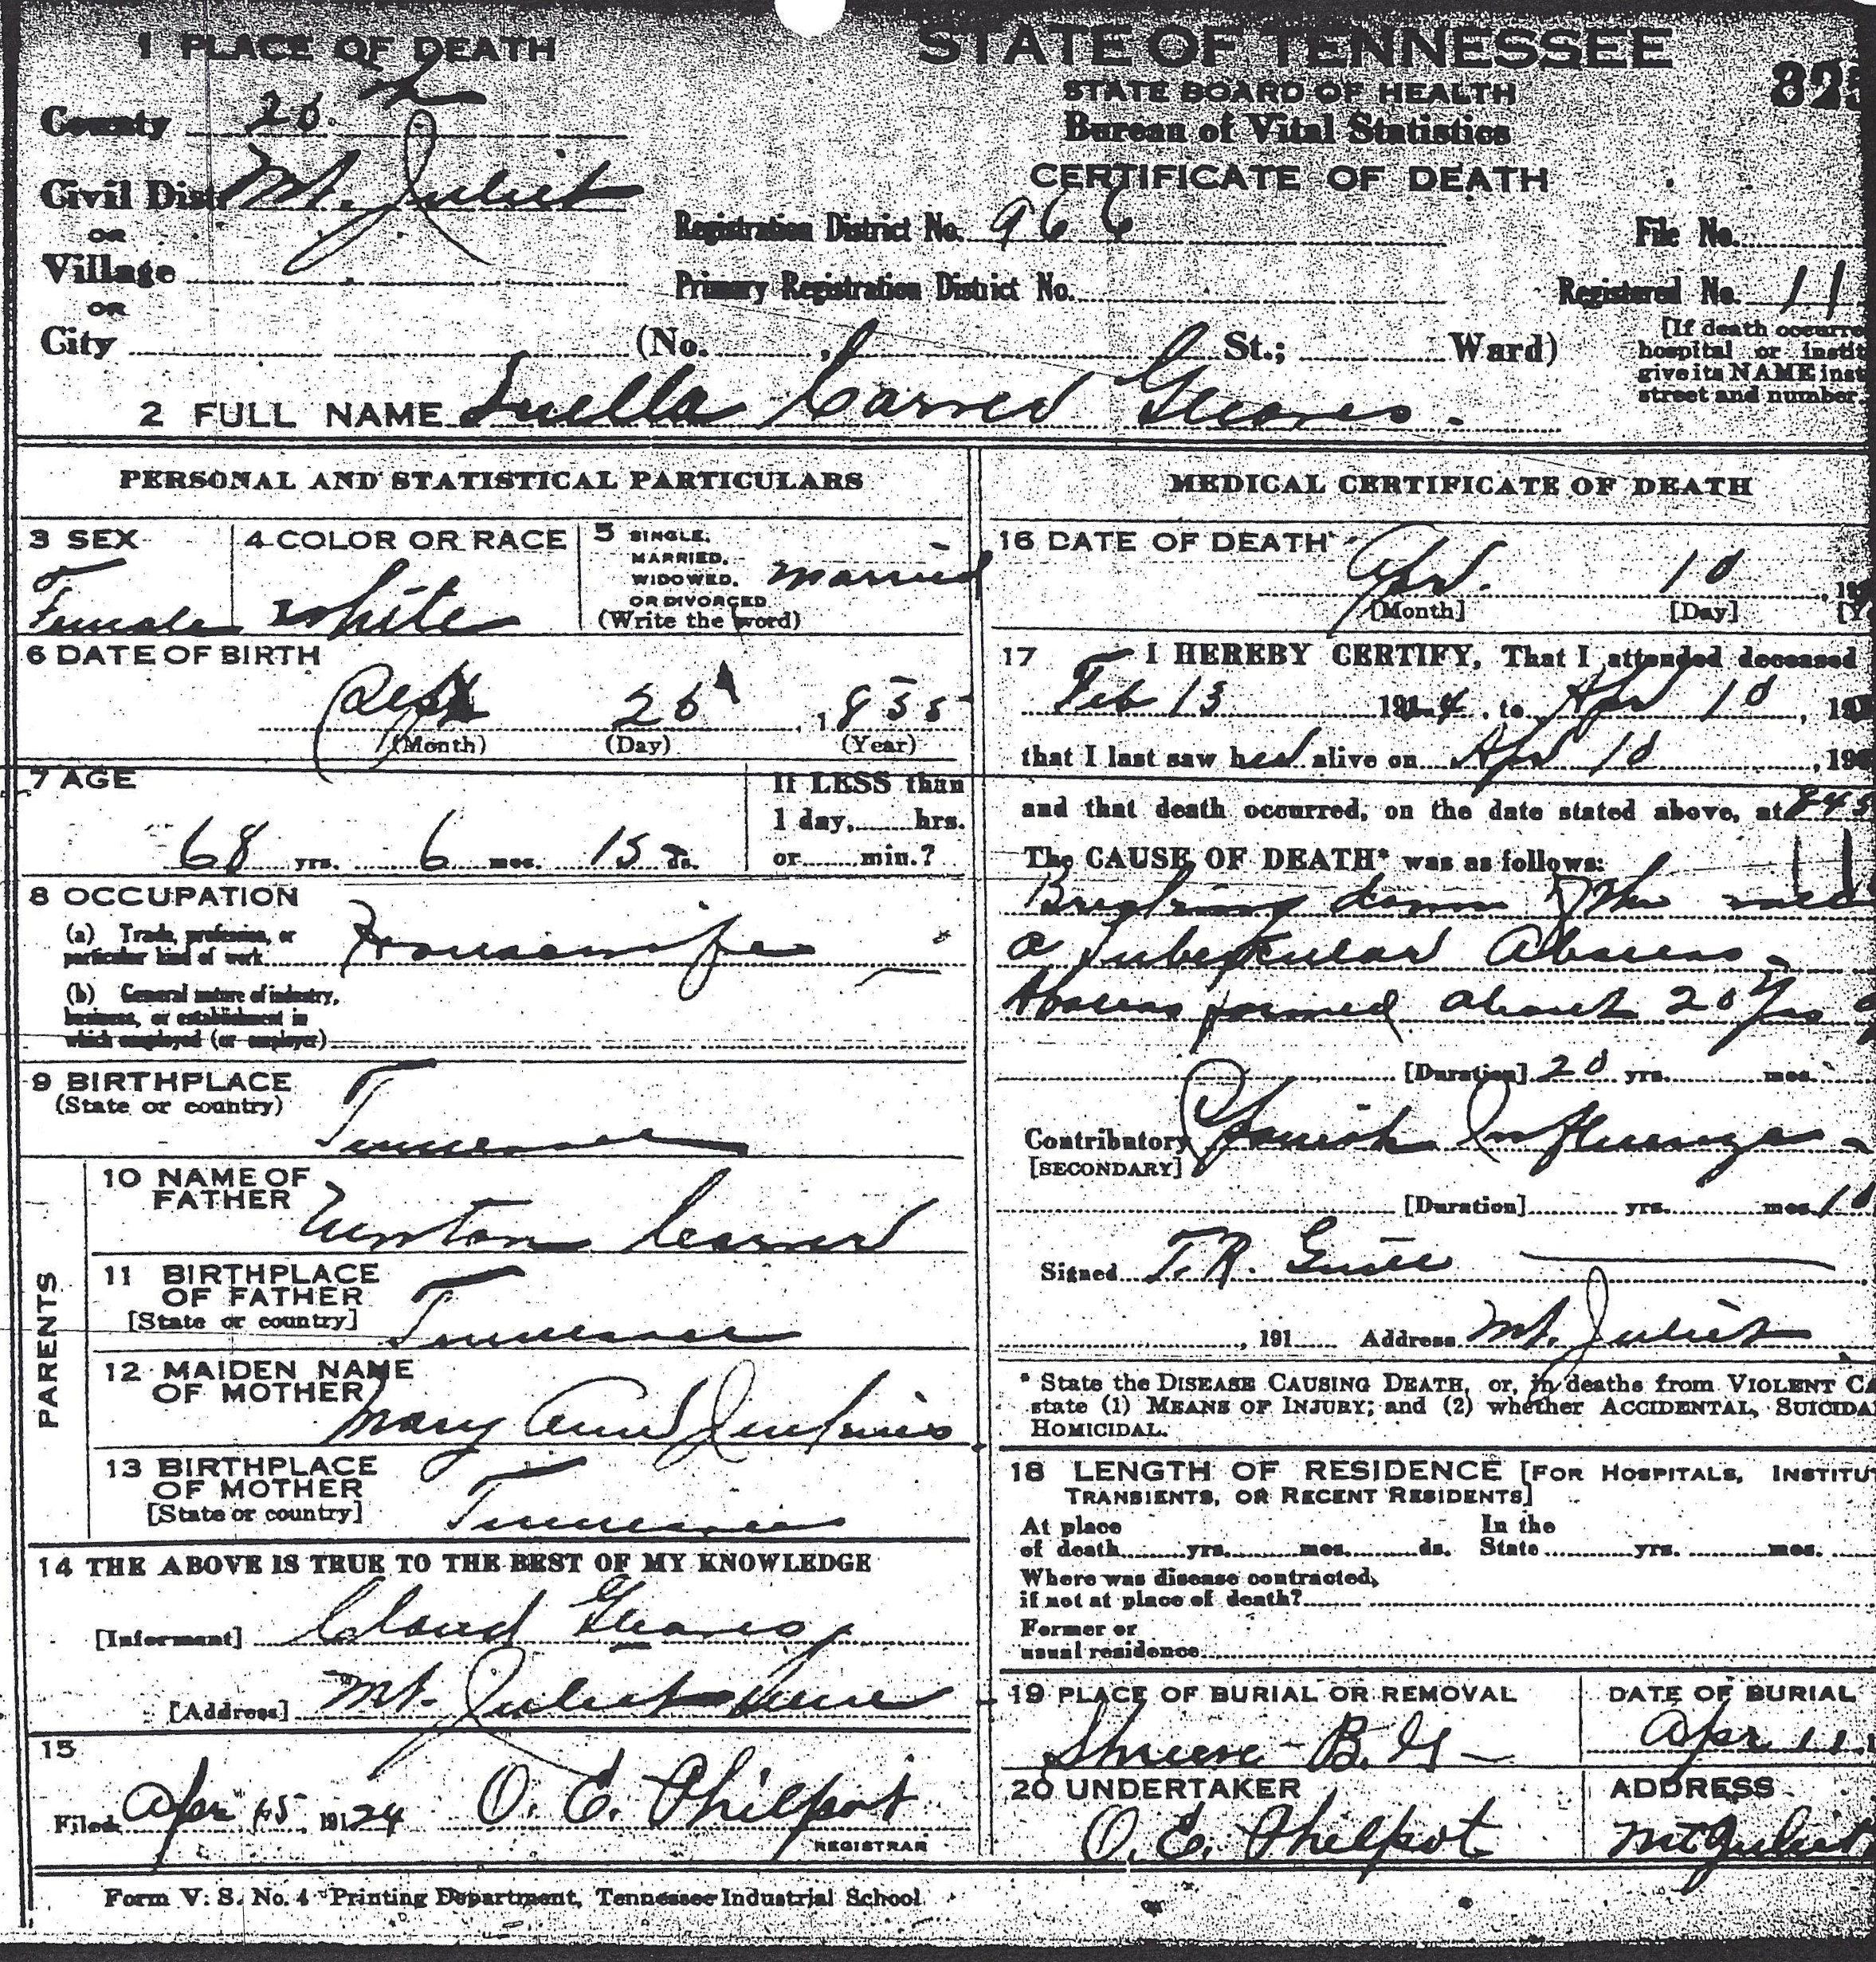 1 PLACE OF DEATH
STATE OF TENNESSEE
STATE BOARD OF HEALTH
Bureau of Vital Statistics
CERTIFICATE OF DEATH
County
Civil Dist. Mt. Juliet
OR
Village
OR
City (No. St.; Ward)
Registration District No. 966
File No.
Primary Registration District No.
Registered No. 11
[If death occurre
hospital or instit
give its NAME inst
street and number.
2 FULL NAME Luella Carver Gleaves.
PERSONAL AND STATISTICAL PARTICULARS
3 SEX
Female
4 COLOR OR RACE
white
5 SINGLE,
MARRIED,
WIDOWED,
OR DIVORCED
(Write the word)
married
6 DATE OF BIRTH
Sept
(Month) (Day) (Year)
7 AGE
68 yrs. 6 mos. 15 ds.
If LESS than
1 day, hrs.
or min.?
8 OCCUPATION
(a) Trade, profession, or
particular kind of work Housewife
(b) General nature of industry,
business, or establishment in
which employed (or employer)
9 BIRTHPLACE
(State or country)
Tennessee
PARENTS
10 NAME OF
FATHER
Newton Carver
11 BIRTHPLACE
OF FATHER
[State or country]
Tennessee
12 MAIDEN NAME
OF MOTHER
Mary Ann Jenkins
13 BIRTHPLACE
OF MOTHER
[State or country]
Tennessee
14 THE ABOVE IS TRUE TO THE BEST OF MY KNOWLEDGE
[Informant] Claud Gleaves
[Address] Mt. Juliet Tenn
15
Filed Apr 15 1924 O. E. Philpot
REGISTRAR
MEDICAL CERTIFICATE OF DEATH
16 DATE OF DEATH
Apr. 10
[Month] [Day]
17 I HEREBY CERTIFY, That I attended deceased
Feb 13 1924, to Apr 10
that I last saw her alive on Apr 10
and that death occurred, on the date stated above, at
The CAUSE OF DEATH* was as follows:
Breaking down of the
a Tubercular Abscess
Abscess formed about 20 yrs
[Duration] 20 yrs. mos.
Contributory Spanish Influenza
[SECONDARY]
[Duration] yrs. mos. 10
Signed T. R.
, 191 Address Mt. Juliet
* State the DISEASE CAUSING DEATH, or, in deaths from VIOLENT CA
state (1) MEANS OF INJURY; and (2) whether ACCIDENTAL, SUICIDA
HOMICIDAL.
18 LENGTH OF RESIDENCE [FOR HOSPITALS, INSTITUT
TRANSIENTS, OR RECENT RESIDENTS]
At place
of death yrs. mos. ds.
In the
State yrs. mos.
Where was disease contracted,
if not at place of death?
Former or
usual residence
19 PLACE OF BURIAL OR REMOVAL
B. G.
DATE OF BURIAL
Apr 11
20 UNDERTAKER
O. E. Philpot
ADDRESS
Mt Juliet
Form V. S. No. 4 Printing Department, Tennessee Industrial School